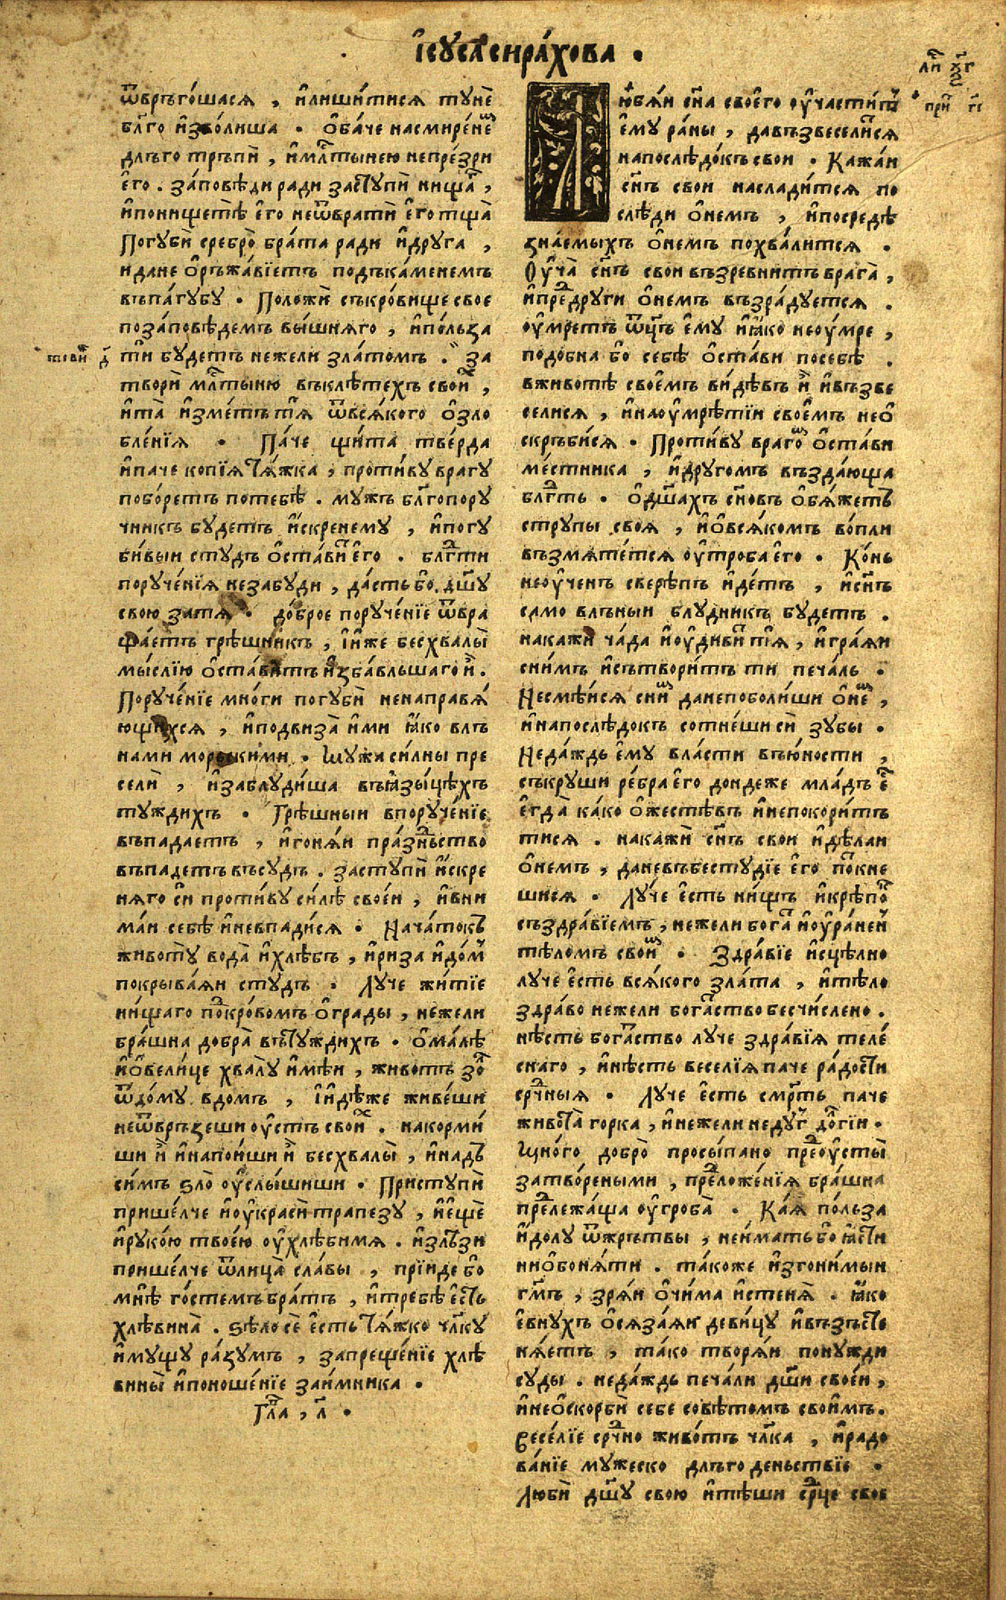 І҆сꙋса сира́хова .
ѿвръго́шасѧ , и҆лиши́тисѧ тꙋнѐ
бл҃го и҆зво́лиша . Ѻ҆ба́че насмире́нѣ
длъго трьпѝ , и҆мл҃тынею непре́зри
е҆го . за́повѣди ради застꙋпѝ нища ,
и҆понищетѣ̀ е҆го неѿвратѝ е҆го тща̀
Погꙋбѝ сребро̀ бра́та ради и҆дрꙋга ,
идане ѻ҆ръжа́вїетъ подъка́менемъ
въпа́гꙋбꙋ . Положѝ съкро́вище свое
поза́повѣдемъ вы́шнѧго , и҆по́льза
тови д҃
ти бꙋдетъ нежели зла́томъ . За
творѝ мл҃тыню въклѣ́техъ свои ,
и҆та̀ и҆зме́тъ тѧ ѿвсѧ́кого ѻ҆зло
бле́нїѧ . Па́че щи́та тве́рда
и҆паче копїѧ тѧ́жка , проти́вꙋ врагꙋ
побо́ретъ потебѣ̀ . мꙋжъ бл҃гопорꙋ
чникъ бꙋдетъ и҆́скренемꙋ , и҆погꙋ
би́выи стꙋдъ ѻ҆ста́ви е҆го . бл҃гти
порꙋче́нїѧ незабꙋди , да́сть бо дш҃ꙋ
свою затѧ̀ . до́брое порꙋче́нїе ѿвра
щаетъ грѣ́шникъ , и҆и҆же бесхвалы̀
мы́слїю ѻ҆ста́витъ и҆зба́вльшаго и҆ .
Порꙋче́нїе мно́ги погꙋбѝ ненаправѧ́
ющихсѧ , и҆подвиза̀ и҆ми ꙗ҆́ко влъ
нами мо́рьскими . Мꙋжа си́лны пре
селѝ , и҆заблꙋди́ша въꙗ҆зы́цѣхъ
тꙋждихъ . Грѣ́шныи впорꙋче́нїе
въпадаетъ , и҆гонѧ́и пра́зньство
въпадетъ въсꙋдъ . застꙋпѝ и҆́скре
нѧго си проти́вꙋ си́лѣ своеи , и҆вни
ма́и себѣ̀ и҆невпади́сѧ . Нача́токъ
животꙋ̀ вода̀ и҆хлѣ́бъ , и҆риза и҆до́м
покрыва́ѧи стꙋдъ . Лꙋче жи́тїе
ни́щаго покро́вомъ ѻ҆грады , нежели
бра́шна добра̀ вътꙋждихъ . Ѻ҆ма́лѣ
и҆ѻ҆вели́це хвалꙋ̀ и҆мѣ́и , живо́тъ зо
ѿдо́мꙋ вдомъ , и҆и҆дѣ́же живе́ши
неѿврьзеши ѹ҆́стъ свои . накорми́
ши и҆ и҆напои́ши и҆ бесхвалы̀ , и҆надъ
си́мъ ѕло̀ ѹ҆слы́шиши . Пристꙋпѝ
прише́лче и҆ѹ҆красѝ трапе́зꙋ , и҆ещѐ
и҆рꙋко́ю твоею ѹ҆хлѣ́бимѧ . и҆злѣ́зи
прише́лче ѿлица̀ сла́вы , прїи́де бо
мнѣ̀ го́стемъ бра́тъ , и҆требѣ е҆сть
хлѣ́вина . ѕѣло сѐ е҆сть тѧ́жко чл҃кꙋ
и҆мꙋщꙋ ра́зꙋмъ , запреще́нїе хлѣ́
вины̀ и҆поноше́нїе заи́мника .
Гла , л҃ .
Лю́бѧи сн҃а своего ѹ҆части́тъ
е҆мꙋ ра́ны , давъзвесели́сѧ
напослѣ́докъ свои . Кажа́и
сн҃ъ свои насладитсѧ по
слѣ́ди ѻ҆немъ , и҆посредѣ̀
зна́емыхъ ѻ҆немъ похва́литсѧ .
Оу҆ча̀ сн҃ъ свои възревни́тъ врага̀ ,
и҆пред дрꙋги ѻ҆немъ възра́дꙋетсѧ .
ѹ҆́мретъ ѿц҃ъ е҆мꙋ и҆ꙗ҆́ко неоу́мре ,
подо́бна бо себѣ̀ ѻ҆ста́ви посебѣ̀ .
вживотѣ̀ свое́мъ ви́дѣвъ и҆ и҆възве
сели́сѧ , и҆наоу҆мрѣ́тїи свое́мъ неѻ҆
скръби́сѧ . Проти́вꙋ враго ѻ҆ста́ви
ме́стника , и҆дрꙋгомъ възда́юща
блг҃ть . ѻ҆дш҃ахъ сн҃овъ ѻ҆бѧ́жетъ
стрꙋпы своѧ̀ , и҆ѻ҆всѧ́комъ во́пли
възмѧте́тсѧ ѹ҆тро́ба е҆го . Ко́нь
неѹ҆че́нъ сверѣ́пъ и҆де́тъ , и҆сн҃ъ
само во́льныи блꙋдникъ бꙋдетъ .
накажѝ ча́да и҆ѹ҆диви́тъ тѧ , и҆гра́ѧи
сни́мъ и҆сътвори́тъ ти печа́ль .
Несмѣ́исѧ сни́м данепоболи́ши ѻ҆не ,
и҆напослѣ́докъ сотнеши сѝ зꙋбы .
Неда́ждь е҆мꙋ вла́сти въю҆́ности ,
съкрꙋши ре́бра е҆го дондеже мла́дъ е҆
е҆гда̀ ка́ко ѻ҆жестѣ́въ и҆непокори́тъ
тисѧ . накажѝ сн҃ъ свои и҆дѣ́лаи
ѻ҆не́мъ , даневъбестꙋдїе е҆го пот́кне
шисѧ . Лꙋче е҆сть ни́щъ и҆крѣ́по
създра́вїемъ , нежели бога и҆ѹ҆ра́нен
тѣломъ свои . Здра́вїе и҆сцѣ́лно
лꙋче е҆сть всѧ́кого зла́та , и҆тѣ́ло
здра́во нежели бога́тство бесчи́слено .
нѣ́сть бога́тство лꙋче здра́вїѧ теле́
снаго , и҆нѣ́сть весе́лїѧ паче ра́дости
срд҃чныѧ . Лꙋче е҆сть смр҃ть паче
живота̀ горка , и҆нежели недꙋг до́лгїи .
Мно́го добро̀ просы́пано предоу҆сты̀
затво́реными , предложе́нїѧ бра́шна
предлежа́ща ѹ҆гроба̀ . Ка́ѧ по́льза
и҆́долꙋ ѿжрътвы , неи҆мать бо ꙗ҆́сти
ниѻ҆бонѧ́ти . та́коже и҆згони́мыи
гм҃ъ , зрѧ́и ѻ҆чи́ма и҆стенѧ̀ . ꙗ҆́ко
е҆внꙋхъ ѻ҆сѧза́ѧи деви́цꙋ и҆възъсте
нѧ́етъ , та́ко творѧ́и понꙋжди
сꙋды . неда́ждь печа́ли дш҃и свое́и ,
и҆неѻ҆скорбѝ себе совѣ́томъ свои́мъ .
Весе́лїе срд҃чно живо́тъ чл҃ка , и҆радо
ва́нїе мꙋжеско длъгоде́ньствїе .
Любѝ дш҃ꙋ свою и҆тѣ́ши срд҃це своѐ